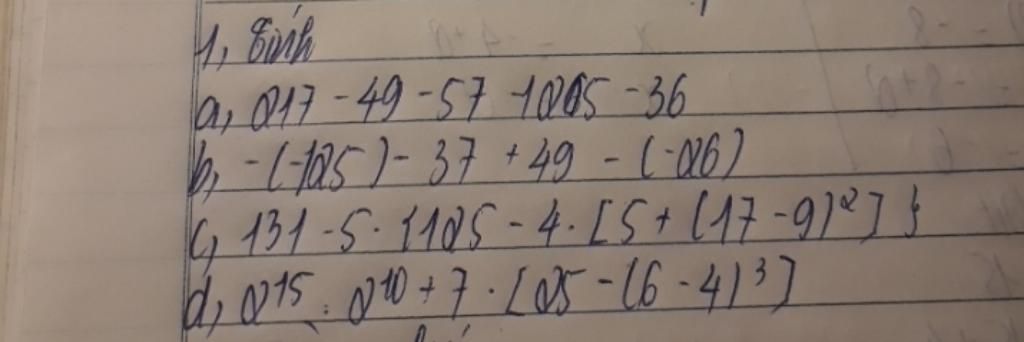 1, Tính
a, 217 - 49 - 57 - 1205 - 36
b, -(-125) - 37 + 49 - (-26)
c, 131 - 5 . {125 - 4 . [5 + (17 - 9)²]}
d, 2¹⁵ : 2¹⁰ + 7 . [25 - (6 - 4)³]